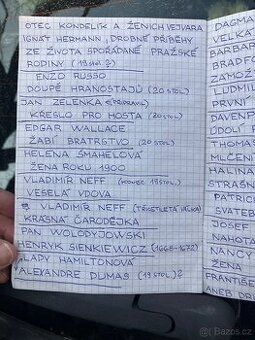 OTEC KONDELÍK A ŽENICH VEJVARA
IGNÁT HERMANN, DROBNÉ PŘÍBĚHY
ZE ŽIVOTA SPOŘÁDANÉ PRAŽSKÉ
RODINY (19 STOL.)
ENZO RUSSO
DOUPĚ HRANOSTAJŮ (20 STOL)
JAN ZELENKA
KŘESLO PRO HOSTA (20 STOL)
EDGAR WALLACE
ŽABÍ BRATRSTVO (20 STOL)
HELENA ŠMAHELOVÁ
ŽENA ROKU 1900
VLADIMÍR NEFF (KONEC 19 STOL.)
VESELÁ VDOVA
VLADIMÍR NEFF (TŘICETILETÁ VÁLKA)
KRÁSNÁ ČARODĚJKA
PAN WOLODYJOWSKI
HENRYK SIENKIEWICZ (1668-1672)
LADY HAMILTONOVÁ
ALEXANDRE DUMAS (19 STOL) 2
DAGMA
VELKÁ
BARBAR
BRADFO
ZÁMOŽ
LUDMIL
PRVNÍ
DAVENP
ÚDOLÍ
THOMAS
MLČENÍ
HALINA
STRAŠN
PATRIC
SVATEB
JOSEF
NAHOTA
NANCY
ŽENA
FRANTIŠE
ANEB DR